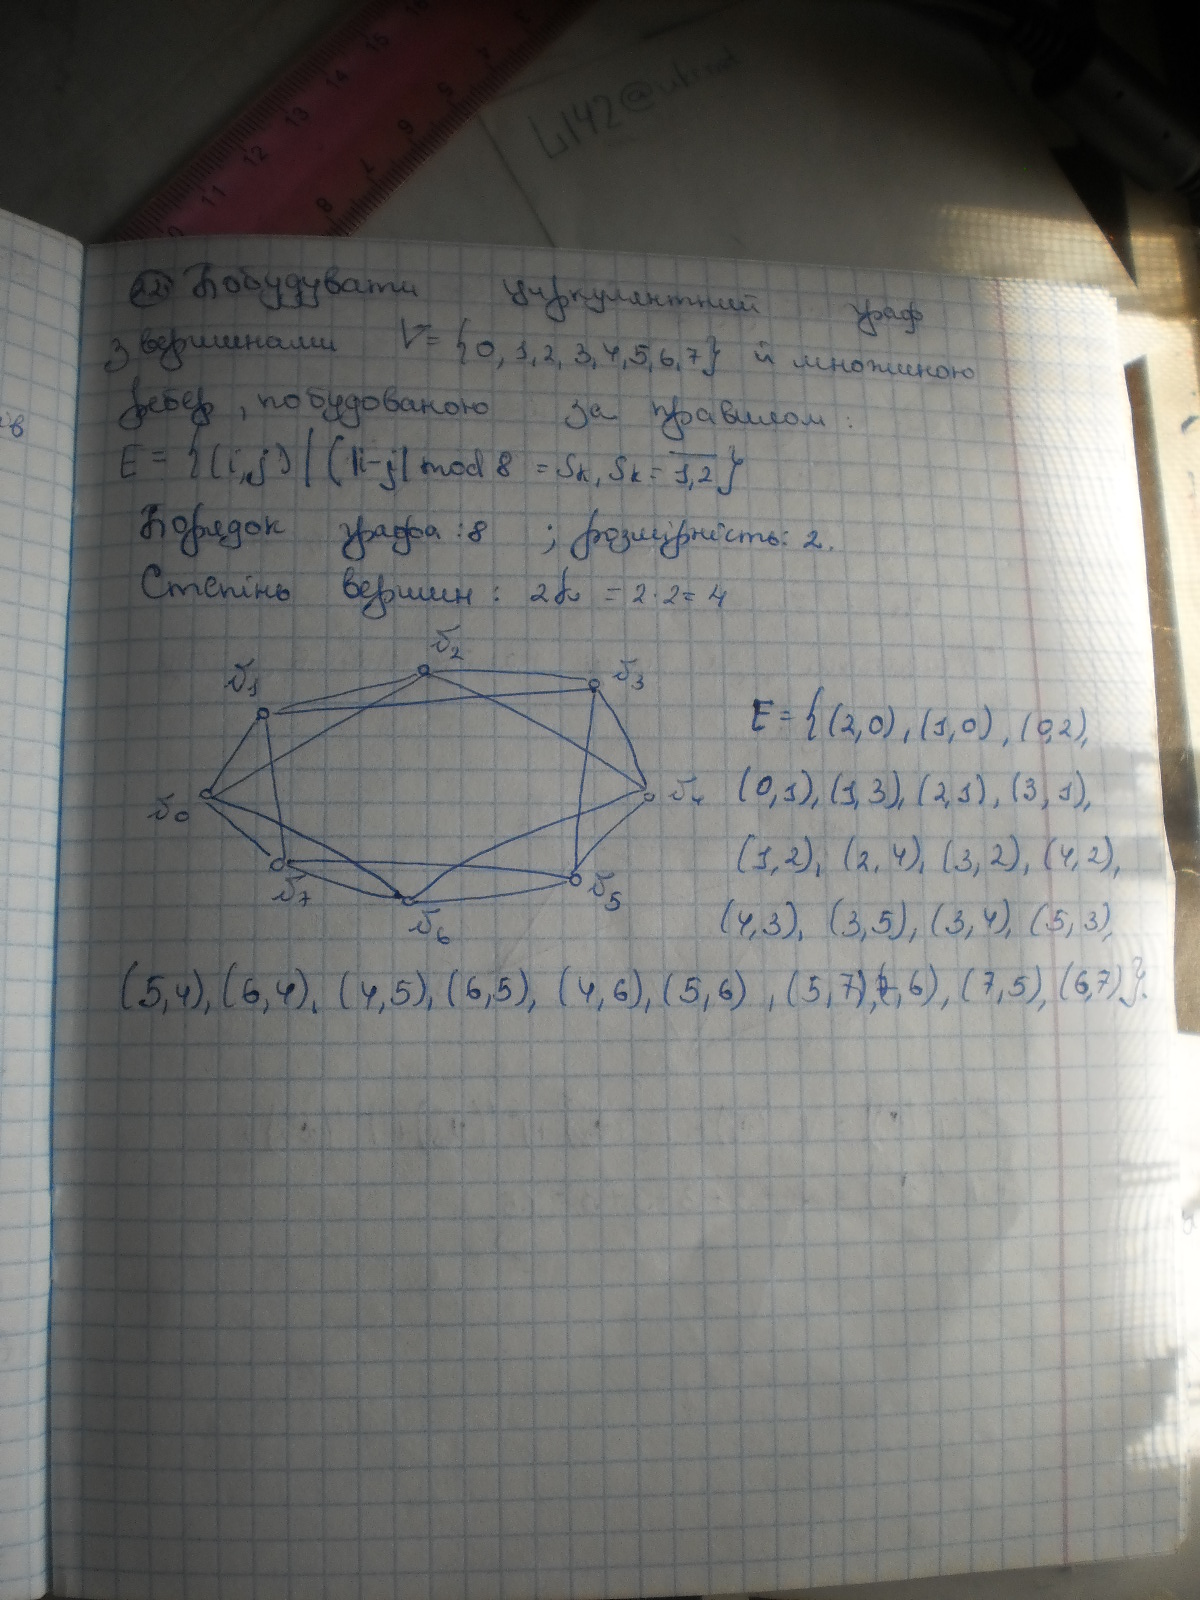 15
14
13
12
11
8
7
6
5
L142@ukr.net
22) Побудувати циркулянтний граф
з вершинами V = {0, 1, 2, 3, 4, 5, 6, 7} й множиною
ребер, побудованою за правилом:
E = {(i, j) | (|i-j| mod 8 = Sk, Sk = 1,2}
Порядок графа: 8 ; розмірність: 2.
Степінь вершин: 2k = 2·2 = 4
v2
v1
v3
v0
v4
v7
v5
v6
E = {(2,0), (1,0), (0,2),
(0,1), (1,3), (2,1), (3,1),
(1,2), (2,4), (3,2), (4,2),
(4,3), (3,5), (3,4), (5,3),
(5,4), (6,4), (4,5), (6,5), (4,6), (5,6), (5,7), (7,6), (7,5), (6,7)}.